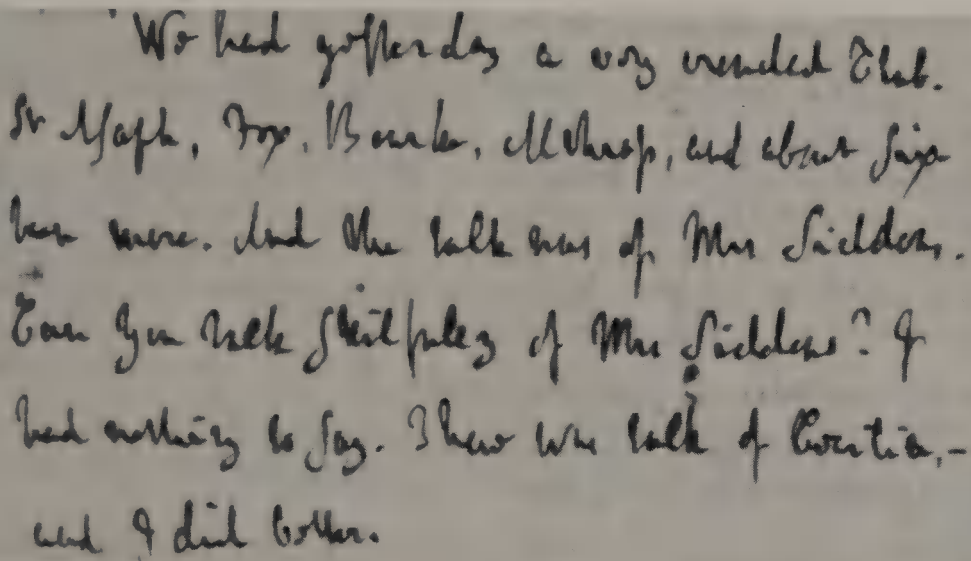 We had yesterday a very crouded Club.
St Asaph, Fox, Bourke, Althrop, and about sixe
teen more. And the talk was of Mrs Siddons.
Can you talk skilfully of Mrs Siddons? I
had nothing to say. There was talk of Cecilia, -
and I did better.